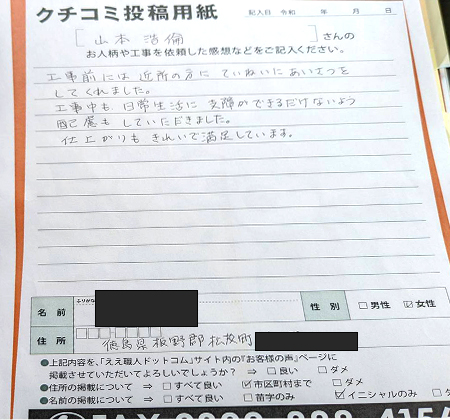 クチコミ投稿用紙 記入日 令和 年 月 日
[山本 浩倫]さんの
お人柄や工事を依頼した感想などをご記入ください。
工事前には近所の方にていねいにあいさつを
してくれました。
工事中も、日常生活に支障ができるだけないよう
配慮もしていただきました。
仕上がりもきれいで満足しています。
ふりがな
名前 性別 □男性 ☑女性
住所 徳島県板野郡松茂町
●上記内容を、「ええ職人ドットコム」サイト内の『お客様の声』ページに
掲載させていただいてよろしいでしょうか? ⇒ □すべて良い □ダメ
●住所の掲載について ⇒ □すべて良い ☑市区町村まで □ダメ
●名前の掲載について ⇒ □すべて良い □苗字のみ ☑イニシャルのみ
FAX